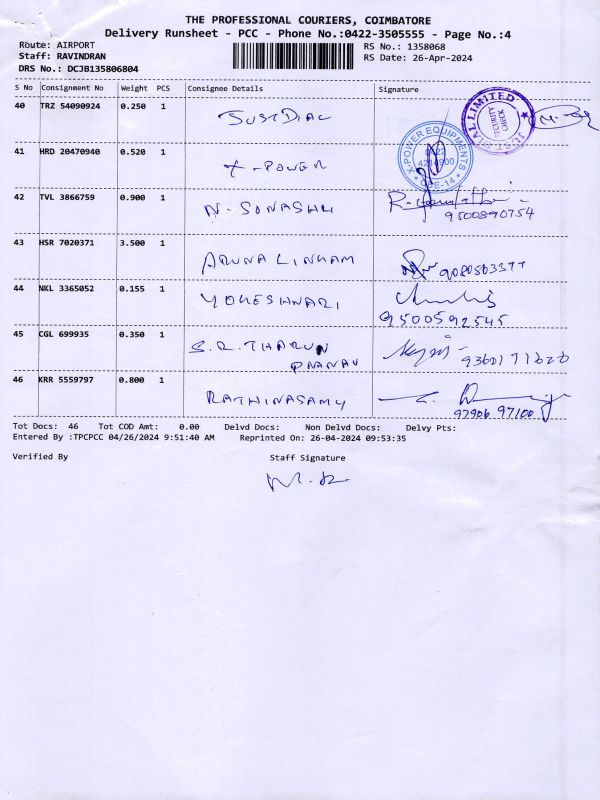 THE PROFESSIONAL COURIERS, COIMBATORE
Delivery Runsheet - PCC - Phone No.:0422-3505555 - Page No.:4
Route: AIRPORT
RS No.: 1358068
Staff: RAVINDRAN
RS Date: 26-Apr-2024
DRS No.: DCJB135806804
S No Consignment No Weight PCS Consignee Details Signature
40 TRZ 54090924 0.250 1 JUSTDIAL
JUST DIAL LIMITED SECURITY CHECK
41 HRD 20470940 0.520 1 X-POWER
X-POWER EQUIPMENTS
42 TVL 3866759 0.900 1 N-SONASHU
9500890754
43 HSR 7020371 3.500 1 ARUNALINGAM
9080503377
44 NKL 3365052 0.155 1 YOKESHWARI
9500592545
45 CGL 699935 0.350 1 S.R.THARUN
PRANAV
46 KRR 5559797 0.800 1 RATHINASAMY
97906 97100
Tot Docs: 46 Tot COD Amt: 0.00 Delvd Docs: Non Delvd Docs: Delvy Pts:
Entered By :TPCPCC 04/26/2024 9:51:40 AM Reprinted On: 26-04-2024 09:53:35
Verified By Staff Signature